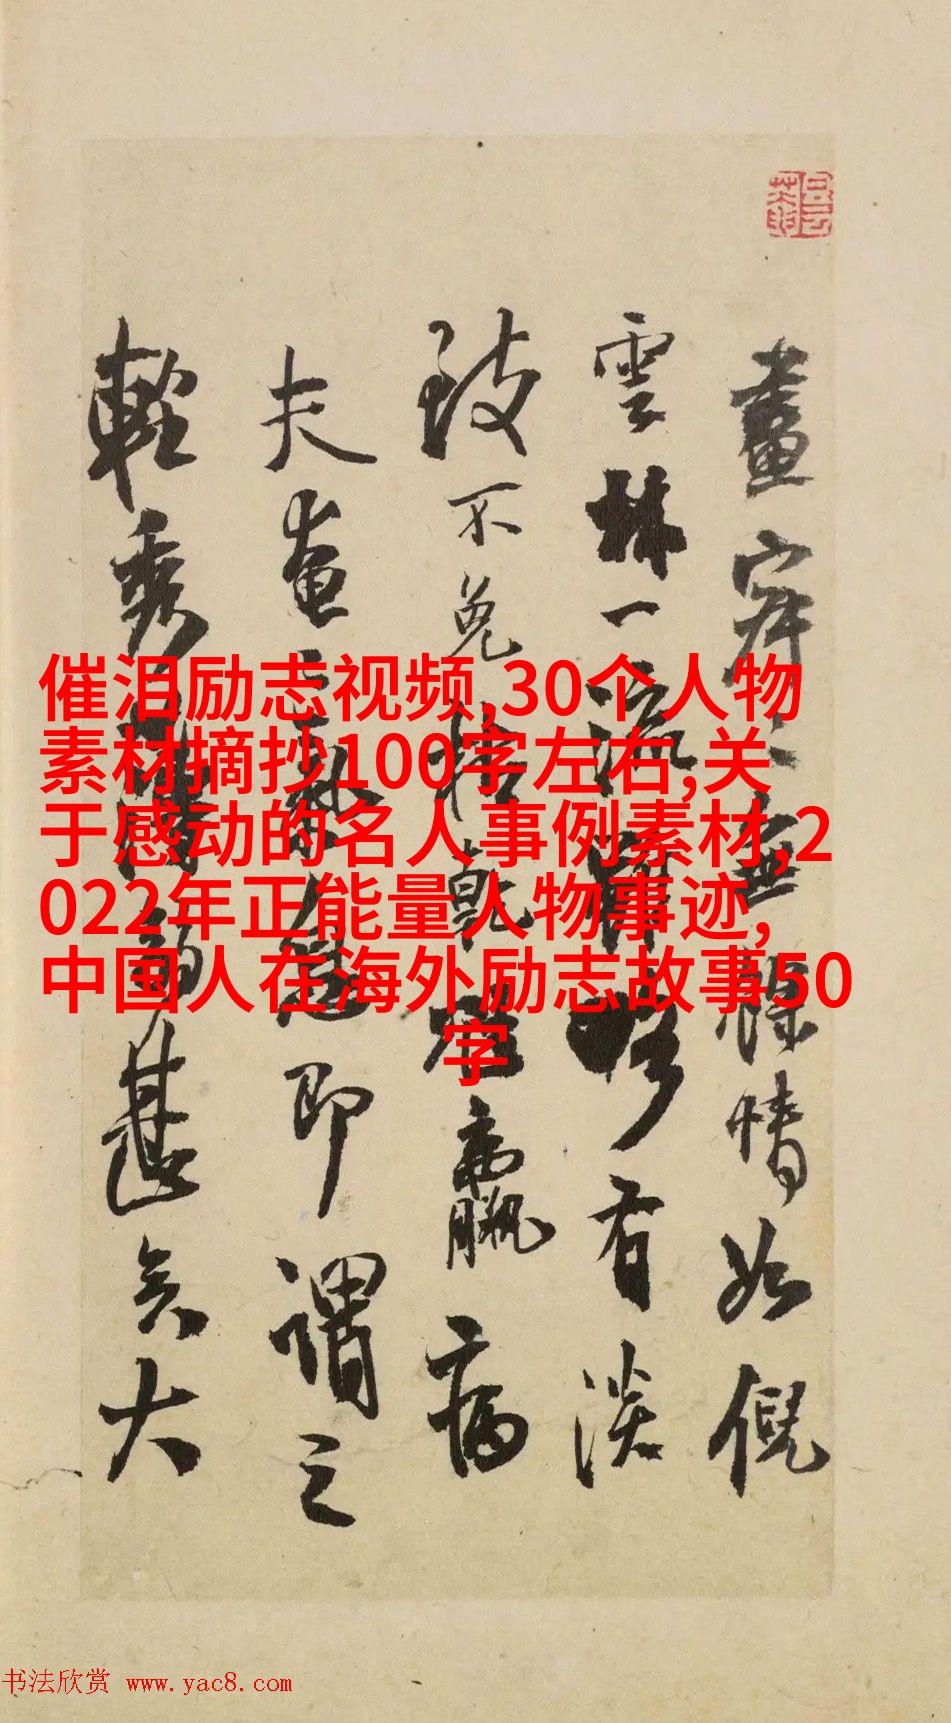 畫寂寂無餘情如倪
雲林一流雖略有淡
致不免枯乾尪羸病
夫奄奄氣息即謂之
輕秀薄弱甚矣大
催泪励志视频,30个人物
素材摘抄100字左右,关
于感动的名人事例素材,2
022年正能量人物事迹,
中国人在海外励志故事50
字
书法欣赏 www.yac8.com